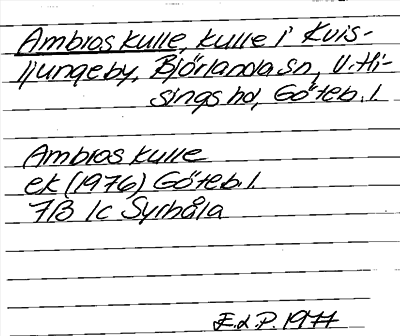 Ambros kulle, kulle i Kvis-
ljungeby, Björlanda sn, V. Hi-
sings hd, Göteb. l.
Ambros kulle
ek (1976) Göteb. l.
7B 1c Syrhåla
E. d. P. 1977